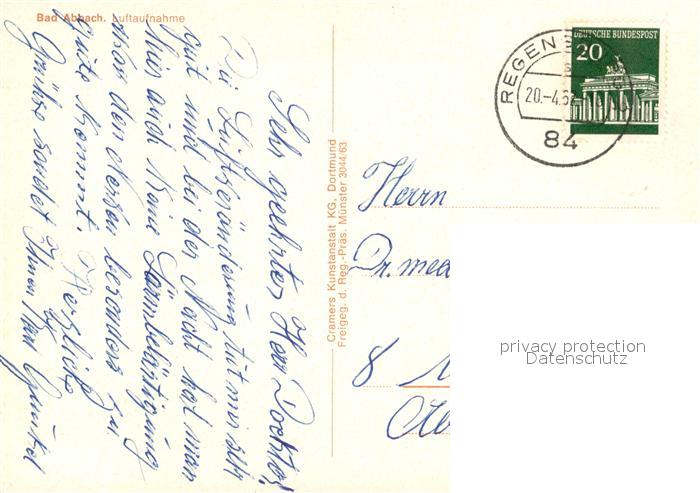 Bad Abbach. Luftaufnahme
Sehr geehrter Herr Doctor!
Die Luftveränderung tut mir sehr
gut und bei der Nacht hat man
hier auch keine Lärmbelästigung
was den Nerven besonders
gute kommt. Herzliche
Grüße sendet Ihnen
Cramers Kunstanstalt KG, Dortmund
Freigeg. d. Reg.-Präs. Münster 3044/63
DEUTSCHE BUNDESPOST
20
REGENS
20.-4.67
84
Herrn
Dr. med
8
privacy protection
Datenschutz